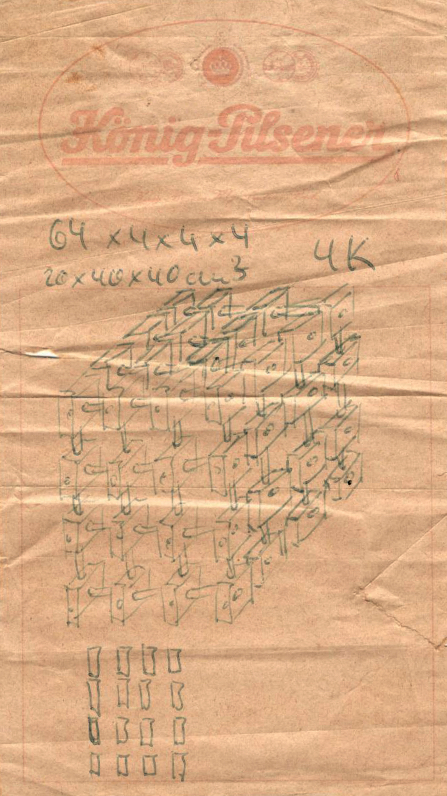 König-Pilsener
64 x 4 x 4 x 4
4K
20 x 40 x 40 cm³